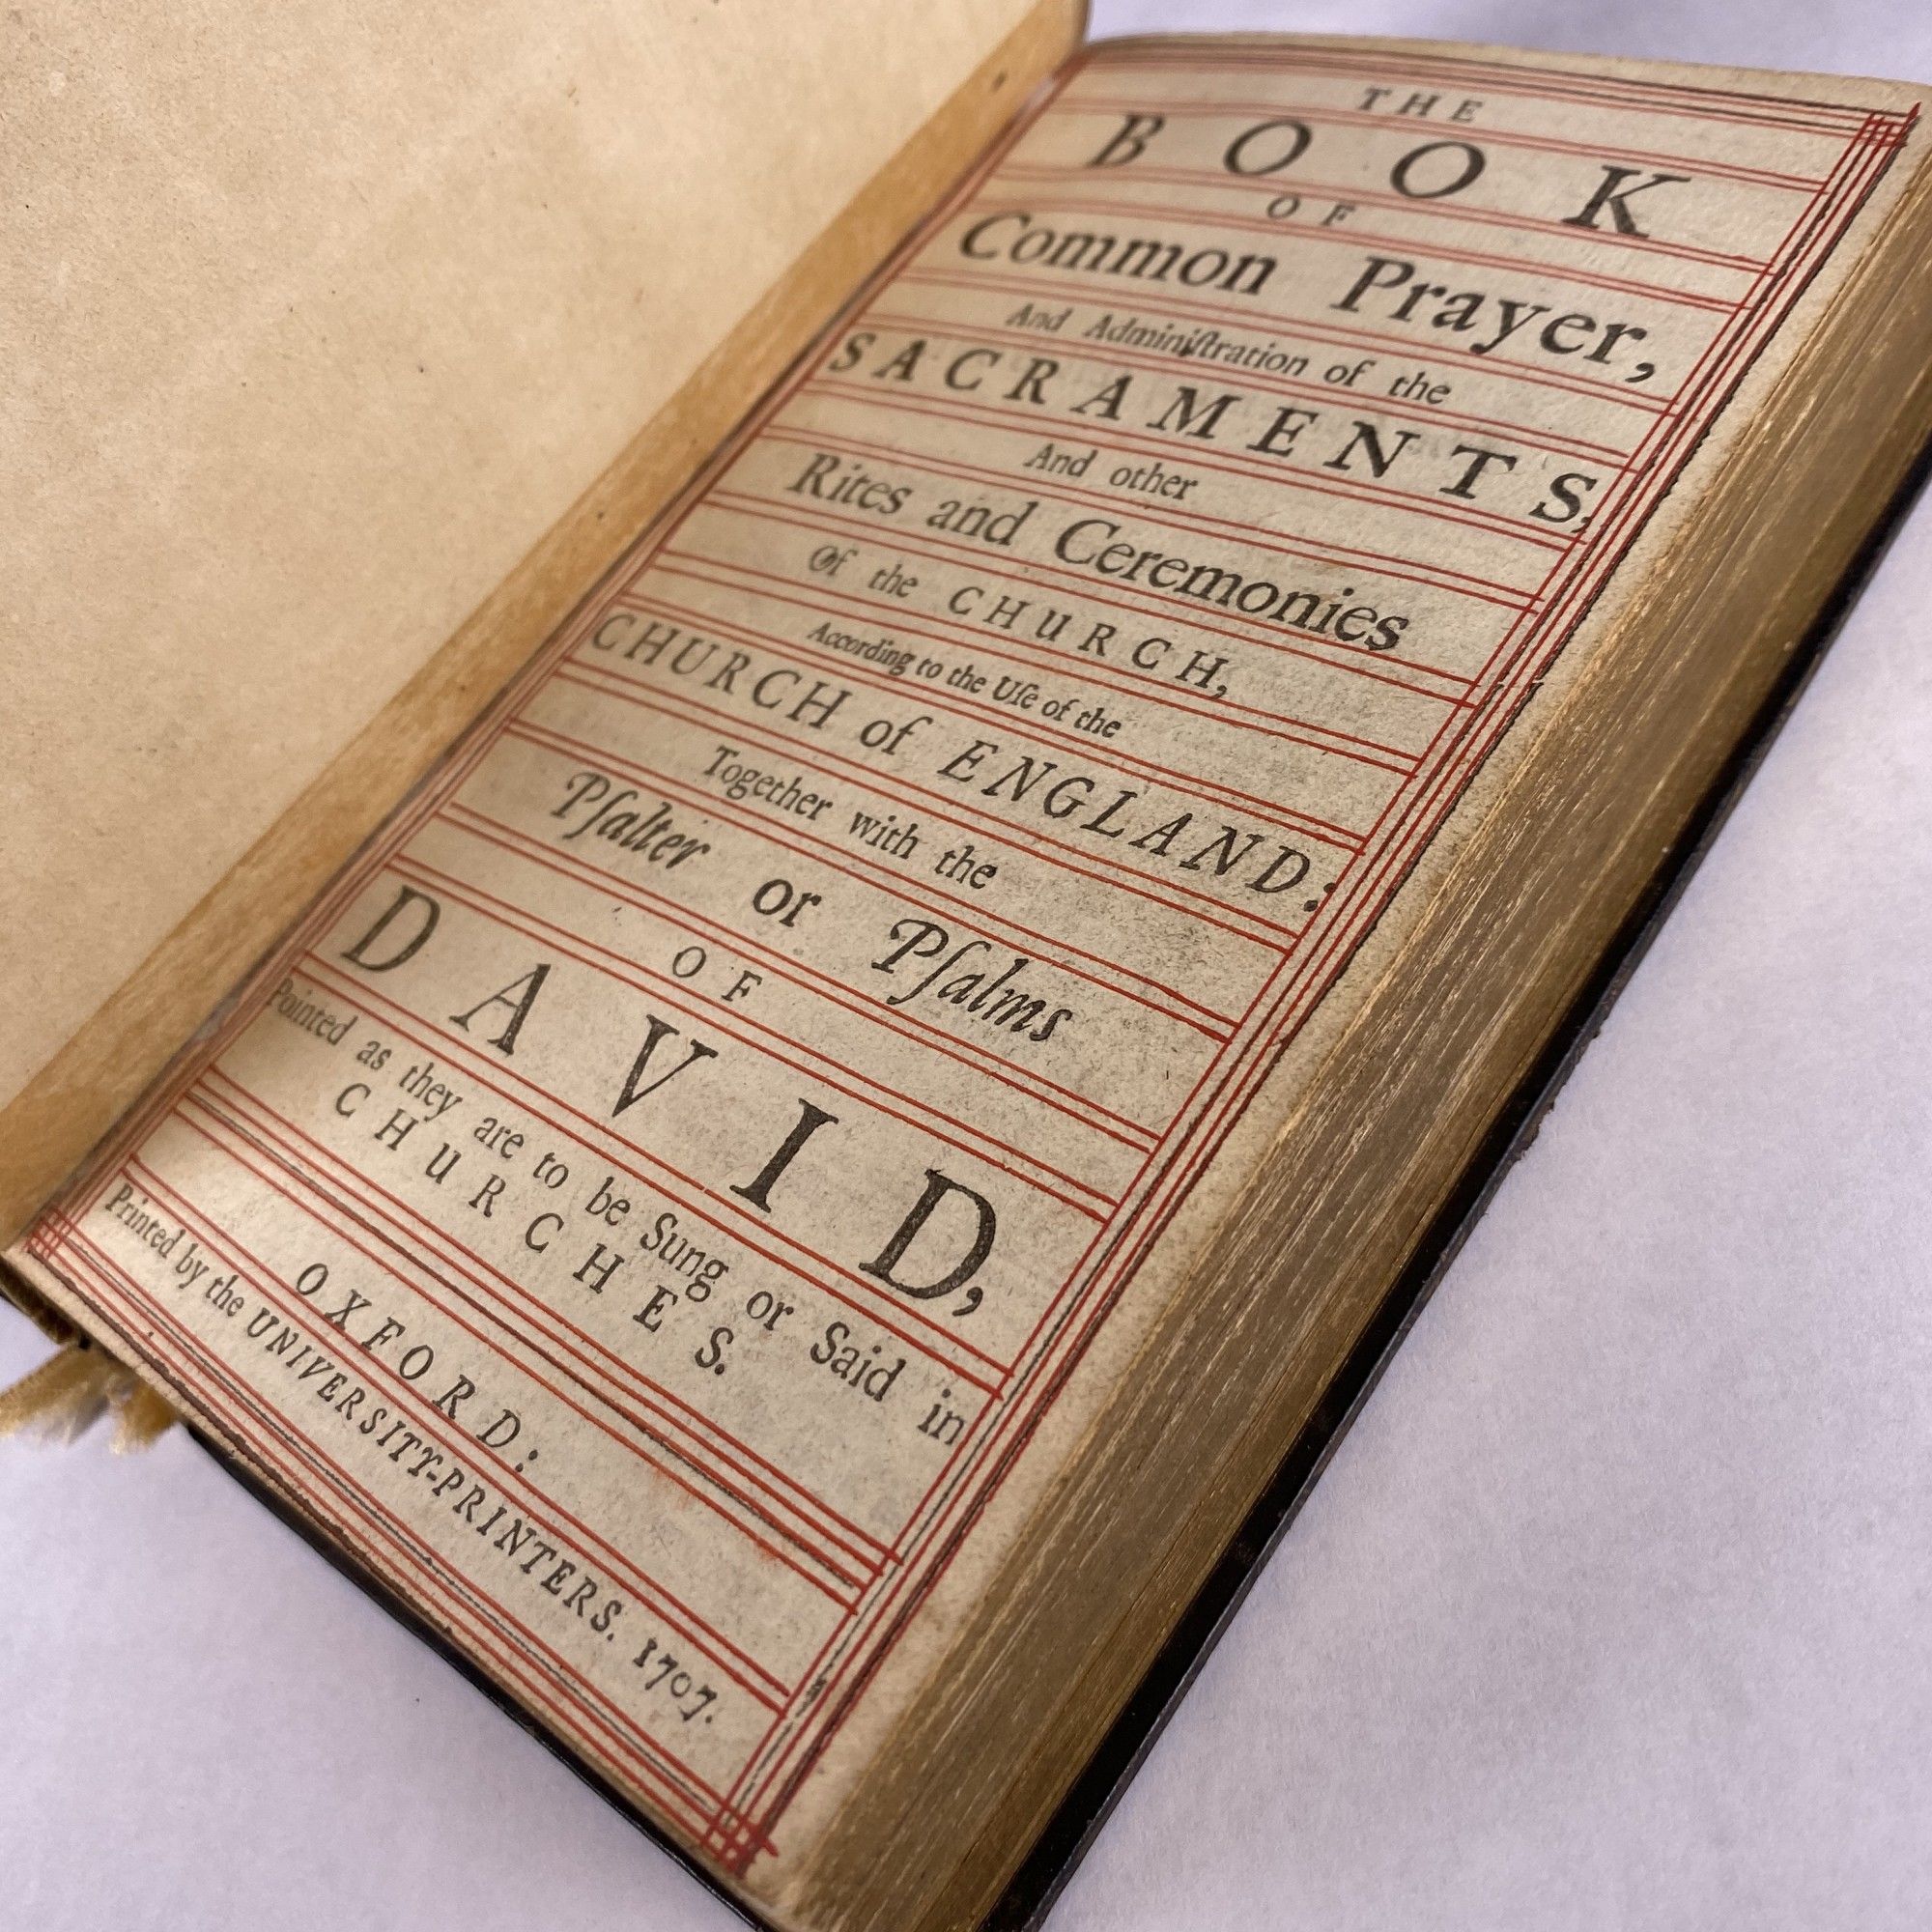 THE
BOOK
OF
Common Prayer,
And Adminiſtration of the
SACRAMENTS,
And other
Rites and Ceremonies
Of the CHURCH,
According to the Uſe of the
CHURCH of ENGLAND:
Together with the
Pſalter or Pſalms
OF
DAVID,
Pointed as they are to be Sung or Said in
CHURCHES.
OXFORD:
Printed by the UNIVERSITY-PRINTERS. 1707.